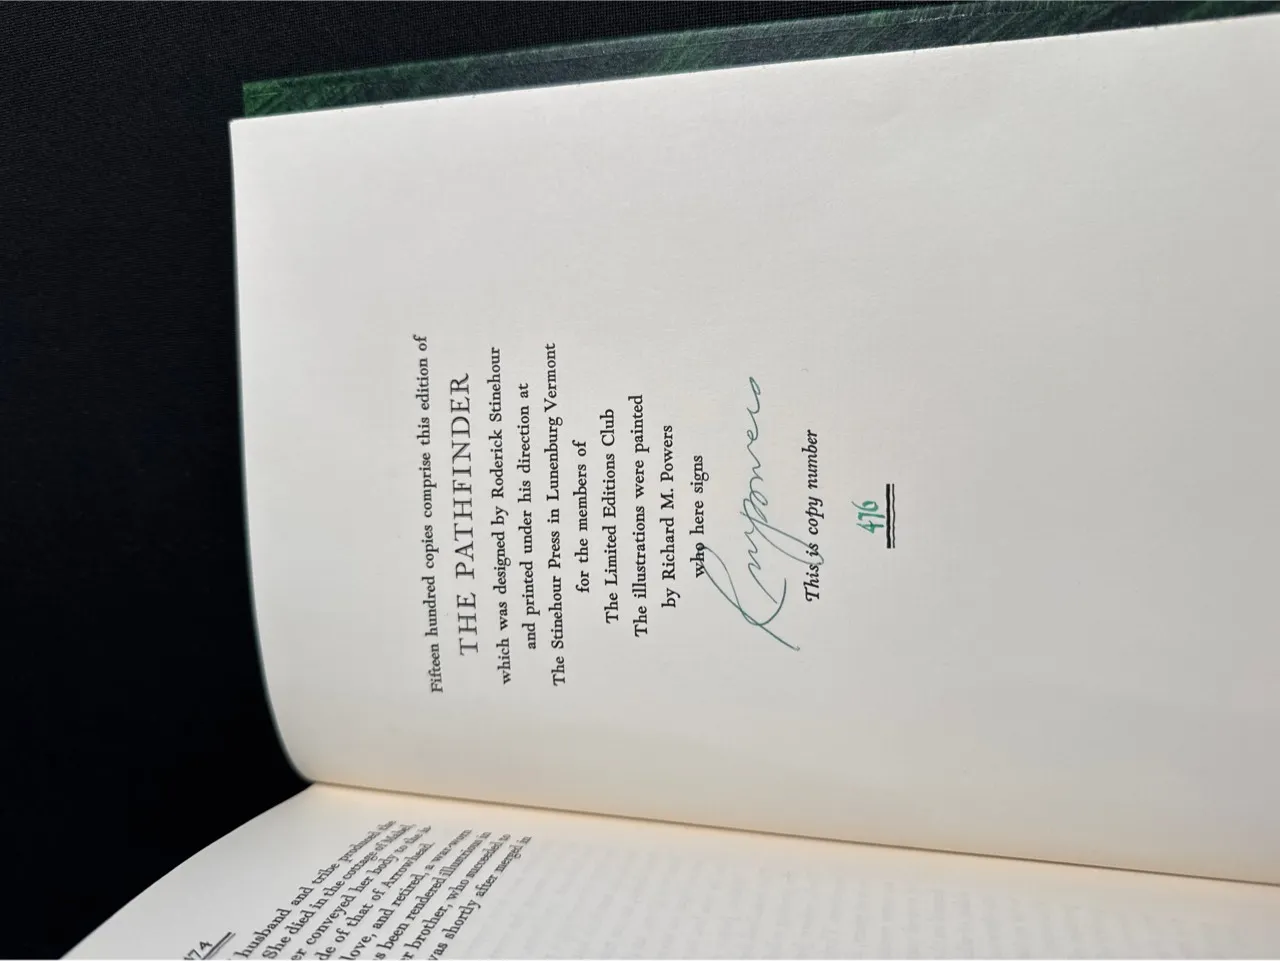 Fifteen hundred copies comprise this edition of
THE PATHFINDER
which was designed by Roderick Stinehour
and printed under his direction at
The Stinehour Press in Lunenburg Vermont
for the members of
The Limited Editions Club
The illustrations were painted
by Richard M. Powers
who here signs
Rmpowers
This is copy number
476
474
husband and tribe produced the
She died in the cottage of Mabel,
er conveyed her body to the is-
de of that of Arrowhead.
love, and retired, a war-worn
s been rendered illustrious in
r brother, who succeeded to
was shortly after merged in